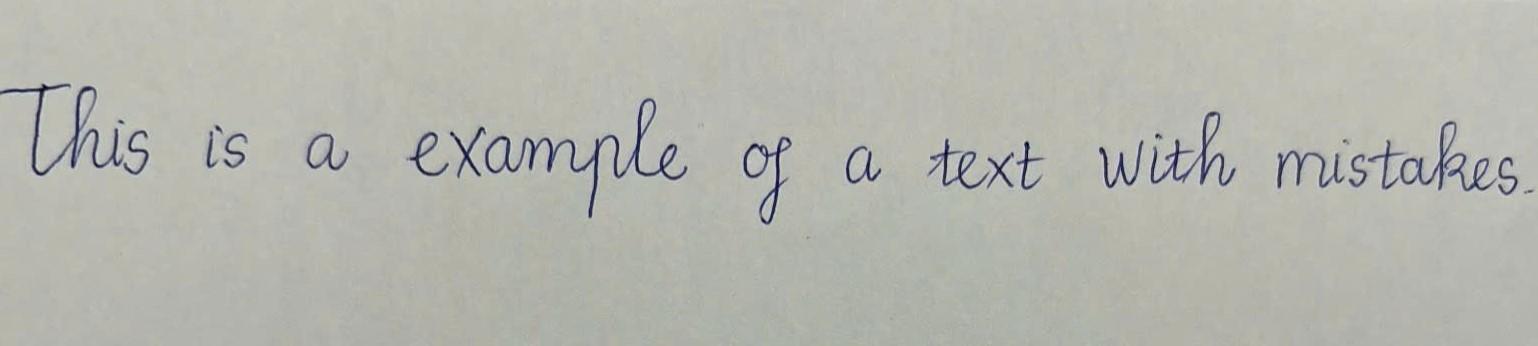 This is a example of a text with mistakes.